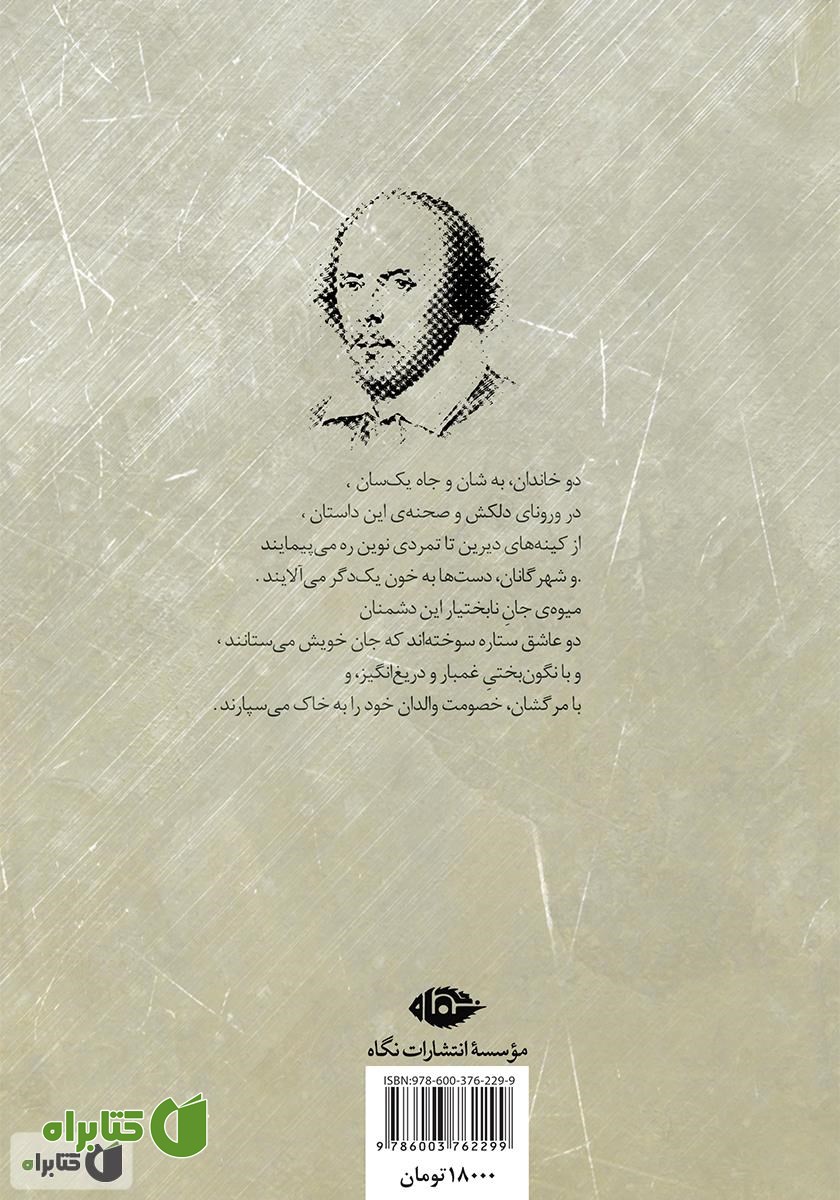 دو خاندان، به شان و جاه یک‌سان ،
در ورونای دلکش و صحنه‌ی این داستان ،
از کینه‌های دیرین تا تمردی نوین ره می‌پیمایند
.و شهرگانان، دست‌ها به خون یک‌دگر می‌آلایند .
میوه‌ی جانِ نابختیار این دشمنان
دو عاشق ستاره سوخته‌اند که جان خویش می‌ستانند ،
و با نگون‌بختیِ غمبار و دریغ‌انگیز، و
با مرگشان، خصومت والدان خود را به خاک می‌سپارند .
نگاه
مؤسسهٔ انتشارات نگاه
ISBN:978-600-376-229-9
9 786003 762299
۱۸۰۰۰ تومان
کتابراه
کتابراه